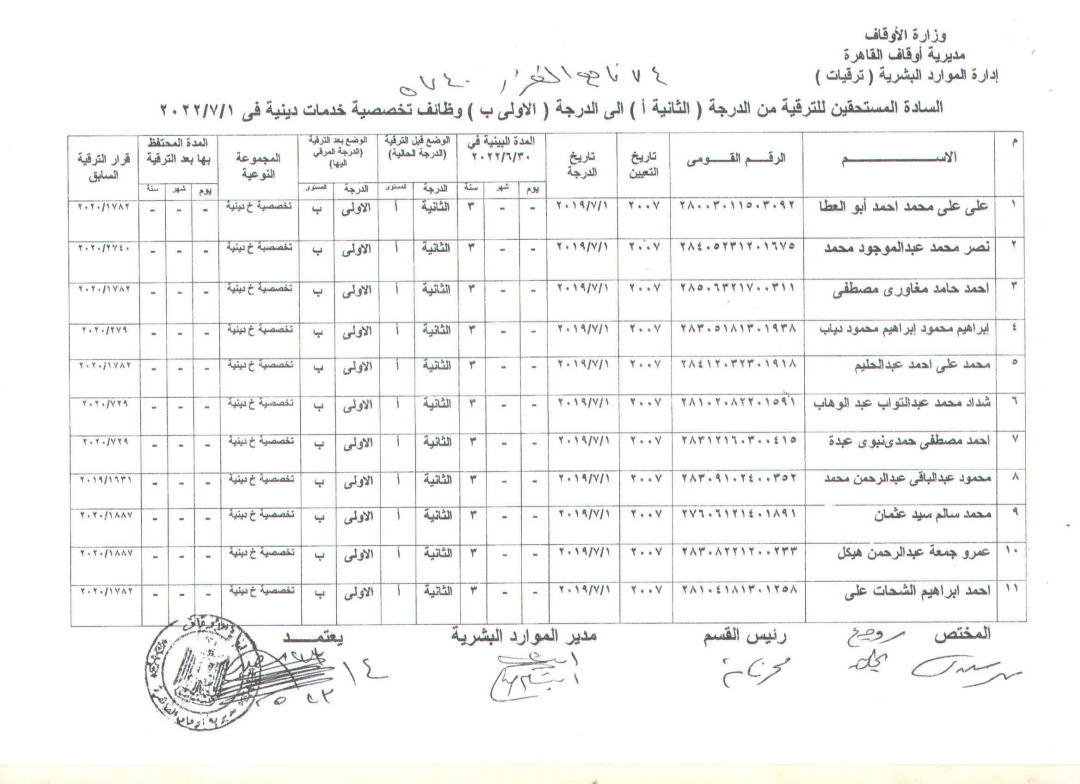 وزارة الأوقاف
مديرية أوقاف القاهرة
إدارة الموارد البشرية ( ترقيات )
٧٤ تابع القرار ٥٧٤٠
السادة المستحقين للترقية من الدرجة ( الثانية أ ) الى الدرجة ( الاولى ب ) وظائف تخصصية خدمات دينية فى ٢٠٢٢/٧/١
م الاســـم الرقم القومى تاريخ التعيين تاريخ الدرجة المدة البينية في ٢٠٢٢/٦/٣٠ الوضع قبل الترقية (الدرجة الحالية) الوضع بعد الترقية (الدرجة المرقي اليها) المجموعة النوعية المدة المحتفظ بها بعد الترقية قرار الترقية السابق
يوم شهر سنة الدرجة المستوى الدرجة المستوى يوم شهر سنة
١ على على محمد احمد أبو العطا ٢٨٠٠٣٠١١٥٠٣٠٩٢ ٢٠٠٧ ٢٠١٩/٧/١ - - ٣ الثانية أ الاولى ب تخصصية خ دينية - - - ٢٠٢٠/١٧٨٢
٢ نصر محمد عبدالموجود محمد ٢٨٤٠٥٢٣١٢٠١٦٧٥ ٢٠٠٧ ٢٠١٩/٧/١ - - ٣ الثانية أ الاولى ب تخصصية خ دينية - - - ٢٠٢٠/٢٧٤٠
٣ احمد حامد مغاورى مصطفى ٢٨٥٠٦٣٢١٧٠٠٣١١ ٢٠٠٧ ٢٠١٩/٧/١ - - ٣ الثانية أ الاولى ب تخصصية خ دينية - - - ٢٠٢٠/١٧٨٢
٤ إبراهيم محمود إبراهيم محمود دياب ٢٨٣٠٥١٨١٣٠١٩٣٨ ٢٠٠٧ ٢٠١٩/٧/١ - - ٣ الثانية أ الاولى ب تخصصية خ دينية - - - ٢٠٢٠/٢٧٩
٥ محمد على احمد عبدالحليم ٢٨٤١٢٠٣٢٣٠١٩١٨ ٢٠٠٧ ٢٠١٩/٧/١ - - ٣ الثانية أ الاولى ب تخصصية خ دينية - - - ٢٠٢٠/١٧٨٢
٦ شداد محمد عبدالتواب عبد الوهاب ٢٨١٠٢٠٨٢٢٠١٥٩١ ٢٠٠٧ ٢٠١٩/٧/١ - - ٣ الثانية أ الاولى ب تخصصية خ دينية - - - ٢٠٢٠/٧٢٩
٧ احمد مصطفى حمدى نبوى عبدة ٢٨٣١٢١٦٠٣٠٠٤١٥ ٢٠٠٧ ٢٠١٩/٧/١ - - ٣ الثانية أ الاولى ب تخصصية خ دينية - - - ٢٠٢٠/٧٢٩
٨ محمود عبدالباقى عبدالرحمن محمد ٢٨٣٠٩١٠٢٤٠٠٣٥٢ ٢٠٠٧ ٢٠١٩/٧/١ - - ٣ الثانية أ الاولى ب تخصصية خ دينية - - - ٢٠١٩/١٦٣١
٩ محمد سالم سيد عثمان ٢٧٦٠٦١٢١٤٠١٨٩١ ٢٠٠٧ ٢٠١٩/٧/١ - - ٣ الثانية أ الاولى ب تخصصية خ دينية - - - ٢٠٢٠/١٨٨٧
١٠ عمرو جمعة عبدالرحمن هيكل ٢٨٣٠٨٢٢١٢٠٠٢٣٣ ٢٠٠٧ ٢٠١٩/٧/١ - - ٣ الثانية أ الاولى ب تخصصية خ دينية - - - ٢٠٢٠/١٨٨٧
١١ احمد ابراهيم الشحات على ٢٨١٠٤١٨١٣٠١٢٥٨ ٢٠٠٧ ٢٠١٩/٧/١ - - ٣ الثانية أ الاولى ب تخصصية خ دينية - - - ٢٠٢٠/١٧٨٢
المختص رئيس القسم مدير الموارد البشرية يعتمـــد